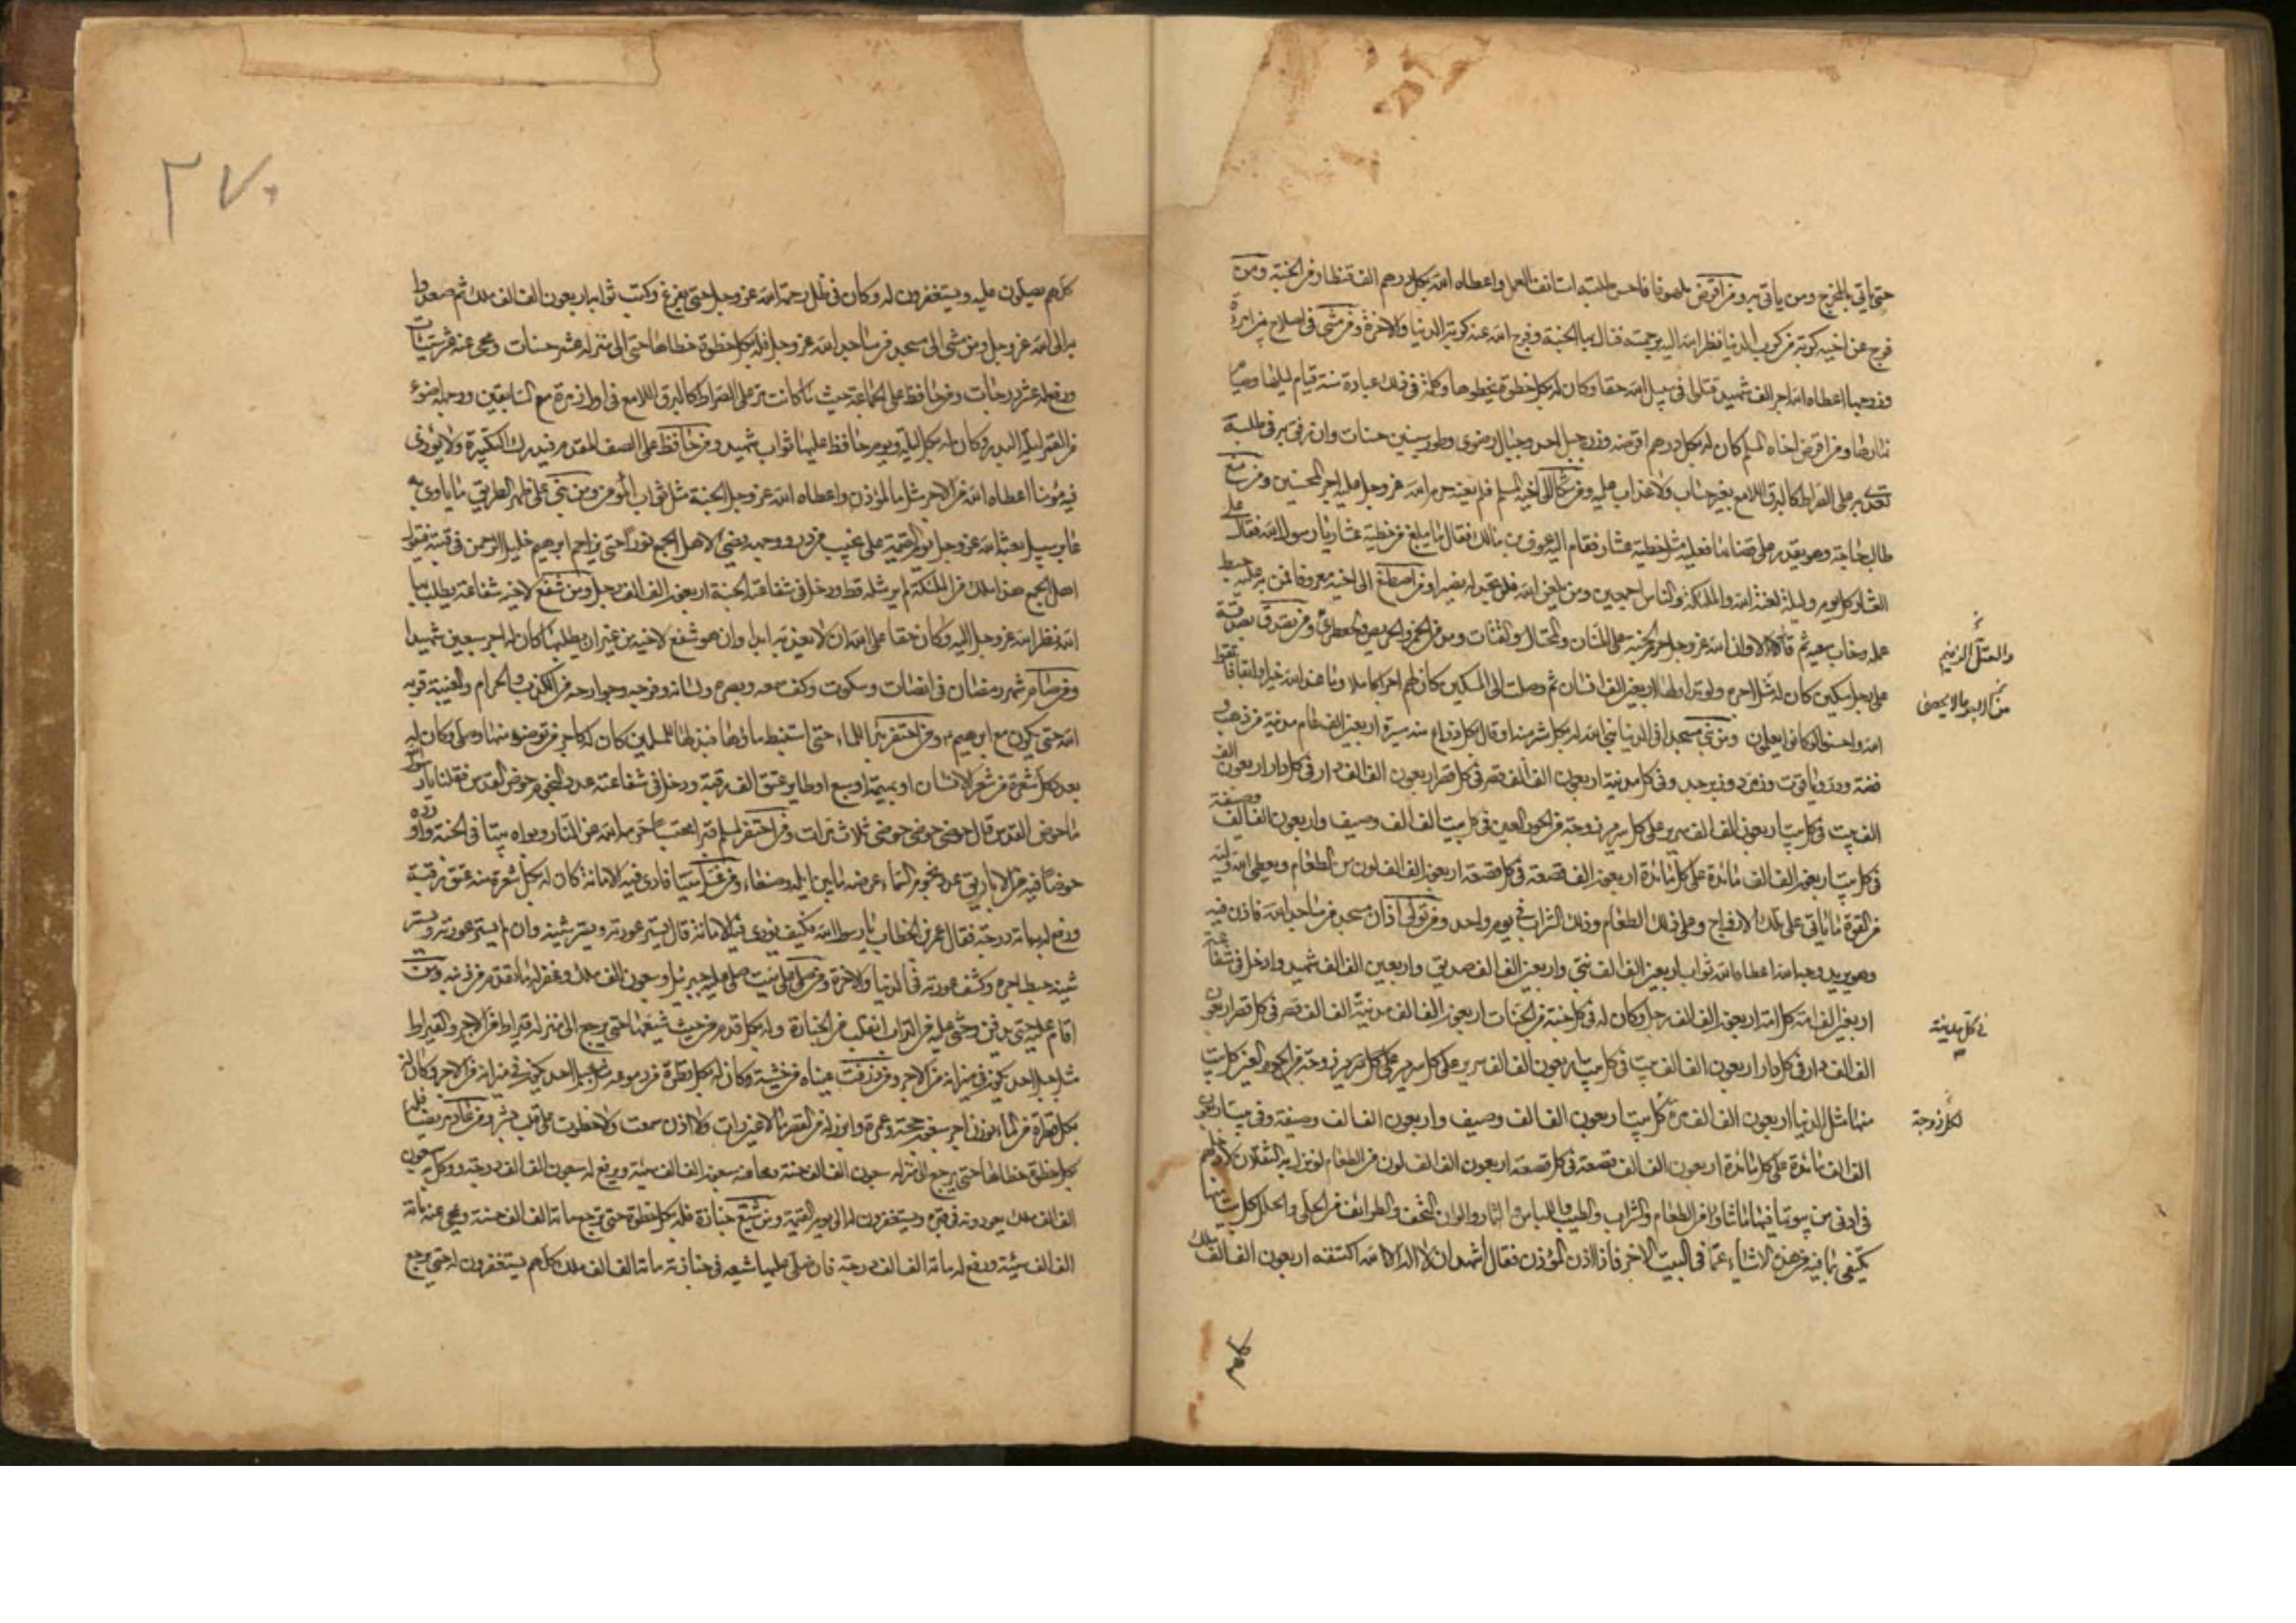 حتى ياتى بالمخرج ومن ياتى به ومن اقرض ملهوفا فاحسن طلبته استانف العمل واعطاه الله بكل درهم الف قنطار من الجنة ومن
فرج عن اخيه كربة من كرب الدنيا نظر الله اليه برحمته فنال بها الجنة وفرج الله عنه كربة الدنيا والاخرة ومن مشى فى اصلاح بين امرءة
وزوجها اعطاه الله اجر الف شهيد قتلوا فى سبيل الله حقا وكان له بكل خطوة يخطوها وكلمة فى ذلك عبادة سنة قيام ليلها وصيام
نهارها ومن اقرض اخاه المسلم كان له بكل درهم اقرضه وزن جبل احد وجبال رضوى وطور سينين حسنات وان رفق به فى طلبه
تعدى به على الصراط كالبرق اللامع بغير حساب ولا عذاب عليه ومن شكا اليه اخيه المسلم فلم يعينه حرم الله عز وجل عليه اجر المحسنين ومن منع
طالب حاجة وهو يقدر على قضائها فعليه مثل خطيئة عشار فقام اليه عوف بن مالك فقال ما يبلغ من خطيئة عشار يا رسول الله فقال على
العشار كل يوم وليلة لعنة الله والملئكة والناس اجمعين ومن يلعن الله فلن تجد له نصيرا ومن اصطنع الى اخيه معروفا فمن به عليه حبط
عمله وخاب سعيه ثم قال الا وان الله عز وجل حرم الجنة على المنان والمختال والقتات ومدمن الخمر والحريص والجعظرى ومن تصدق بصدقة
والعتل الزنيم
على رجل مسكين كان له مثل اجره ولو تداولها اربعين الف انسان ثم وصلت الى المسكين كان لهم اجرا كاملا وما عند الله خير وابقى للذين اتقوا
واحسنوا لو كانوا يعلمون ومن بنى مسجدا فى الدنيا بنى الله له بكل شبر منه او قال بكل ذراع منه مسيرة اربعين الف عام مدينة من ذهب و
فضة ودر وياقوت وزمرد وزبرجد وفى كل مدينة اربعون الف الف قصر فى كل قصر اربعون الف الف دار فى كل دار اربعون الف
الف بيت فى كل بيت اربعون الف الف سرير على كل سرير زوجة من الحور العين فى كل بيت الف الف وصيف واربعون الف الف وصيفة
فى كل بيت اربعون الف الف مائدة على كل مائدة اربعون الف قصعة فى كل قصعة اربعون الف الف لون من الطعام ويعطى الله وليه
من القوة ما ياتى على تلك الازواج وعلى ذلك الطعام وذلك الشراب فى يوم واحد ومن تولى اذان مسجد من مساجد الله فاذن فيه
وهو يريد وجه الله اعطاه الله ثواب اربعين الف الف نبى واربعين الف الف صديق واربعين الف الف شهيد وادخل فى شفاعته
اربعين الف امة كل امة اربعون الف الف رجل وكان له فى كل جنة من الجنات اربعون الف الف مدينة الف الف قصر فى كل قصر اربعون
فى كل مدينة
الف الف دار فى كل دار اربعون الف الف بيت فى كل بيت اربعون الف الف سرير على كل سرير زوجة من الحور العين كل بيت
منها مثل الدنيا اربعون الف الف مرة كل بيت اربعون الف الف وصيف واربعون الف الف وصيفة وفى كل بيت اربعون
لكل زوجة
الف الف مائدة على كل مائدة اربعون الف الف قصعة فى كل قصعة اربعون الف الف لون من الطعام لو نزل به الثقلان لادخلهم
فى ادنى من بيوتها فيها ما شاؤا من الطعام والشراب والطيب واللباس والثمار والوان التحف والطرائف من الحلى والحلل كل بيت منها
يكتفى بما فيه من هذه الاشياء عما فى البيت الاخر فاذا اذن المؤذن فقال اشهد ان لا اله الا الله اكتنفه اربعون الف الف ملك
كلهم يصلون عليه ويستغفرون له وكان فى ظل رحمة الله عز وجل حتى يفرغ وكتب ثوابه اربعون الف الف ملك ثم صعدوا
به الى الله عز وجل ومن مشى الى مسجد من مساجد الله عز وجل فله بكل خطوة خطاها حتى الى منزله عشر حسنات ومحى عنه عشر سيئات
ورفع له عشر درجات ومن حافظ على الجماعة حيث ما كانت مر على الصراط كالبرق اللامع فى اول زمرة مع السابقين ووجهه اضوء
من القمر ليلة البدر وكان له بكل ليلة ويوم حافظ عليها ثواب شهيد ومن حافظ على الصف المقدم فيدرك التكبيرة ولا يؤذى
فيه مؤمنا اعطاه الله من الاجر مثل ما للمؤذن واعطاه الله عز وجل الجنة مثل ثواب المؤذن ومن بنى على ظهر الطريق ما ياوى به
عابر سبيل بعثه الله عز وجل يوم القيمة على نجيب من در ووجهه يضىء لاهل الجمع نورا حتى يزاحم ابرهيم خليل الرحمن فى قبته فيقول
اهل الجمع هذا ملك من الملئكة لم ير مثله قط ودخل فى شفاعته الجنة اربعون الف الف رجل ومن شفع لاخيه شفاعة يطلب بها
الله نظر الله عز وجل اليه وكان حقا على الله ان لا يعذبه ابدا وان هو شفع لاخيه من غير ان يطلبها كان له اجر سبعين شهيدا
ومن صام شهر رمضان فى انصات وسكوت وكف سمعه وبصره ولسانه وفرجه وجوارحه من الكذب والحرام والغيبة قربه
الله حتى يكون مع ابرهيم ومن احتفر بئرا للماء حتى استنبط ماؤها فبذلها للمسلمين كان له كاجر من توضؤ منها وصلى وكان له
بعدد كل شعرة من شعر الانسان او بهيمة او سبع او طاير عتق الف رقبة ودخل فى شفاعته عدد النجوم حوض القدس فقلنا يا رسول الله
ما حوض القدس قال حوضى حوضى حوضى ثلاث مرات ومن احتفر لمسلم قبرا محتسبا حرمه الله عن النار وبواه بيتا فى الجنة واورده
حوضا فيه من الاباريق عدد نجوم السماء عرضه ما بين ايله وصنعاء ومن غسل ميتا فادى فيه الامانة كان له بكل شعرة منه عتق رقبة
ورفع له بها مائة درجة فقال عمر بن الخطاب يا رسول الله فكيف يؤدى فيه الامانة قال يستر عورته ويستر شينه وان لم يستر عورته ويستر
شينه حبط اجره وكشف عورته فى الدنيا والاخرة ومن صلى على ميت صلى عليه جبرئيل وسبعون الف ملك وغفر له ما تقدم من ذنبه ومن
اقام عليه حتى يدفن وحثى عليه من التراب انقلب من الجنازة وله بكل قدم من حيث شيعها حتى يرجع الى منزله قيراط من الاجر والقيراط
مثل جبل احد يكون فى ميزانه من الاجر ومن ذرفت عيناه من خشية كان له بكل قطرة من دموعه مثل جبل احد يكون فى ميزانه من الاجر وكان له
بكل خطوة خطاها حتى يرجع الى منزله سبعون الف الف حسنة ومحا عنه سبعون الف الف سيئة ويرفع له سبعون الف الف درجة ووكل به سبعون
الف الف ملك يعودونه فى قبره ويستغفرون له الى يوم القيمة ومن شيع جنازة فله بكل خطوة حتى يرجع مائة الف الف حسنة ومحى عنه مائة
الف الف سيئة ورفع له مائة الف الف درجة فان صلى عليها شيعه فى جنازته مائة الف الف ملك كلهم يستغفرون له حتى يرجع